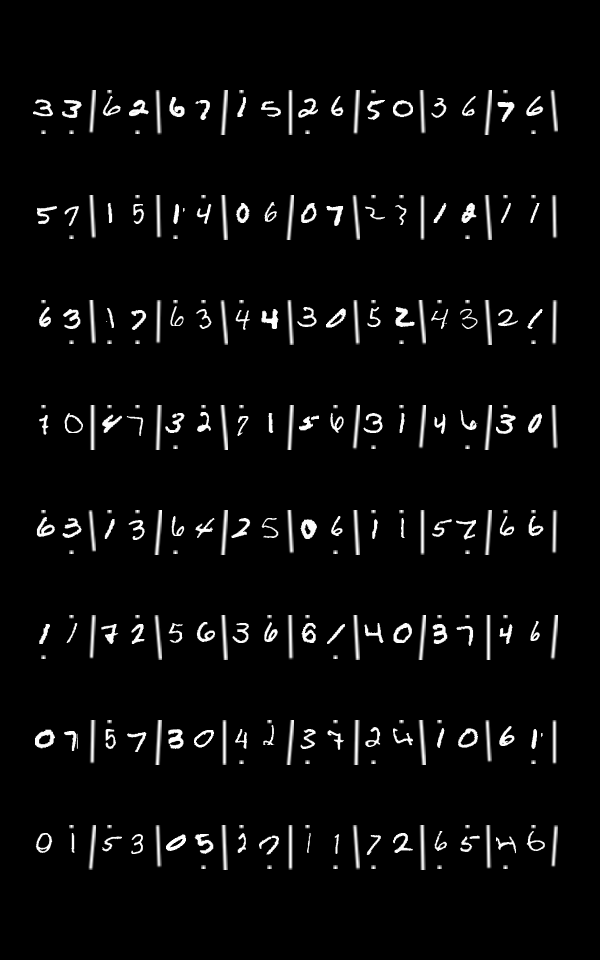 3 3 | 6 2 | 6 7 | 1 5 | 2 6 | 5 0 | 3 6 | 7 6 |
5 7 | 1 5 | 1 4 | 0 6 | 0 7 | 2 3 | 1 2 | 1 1 |
6 3 | 1 7 | 6 3 | 4 4 | 3 0 | 5 2 | 4 3 | 2 1 |
7 0 | 4 7 | 3 2 | 7 1 | 5 6 | 3 1 | 4 6 | 3 0 |
6 3 | 1 3 | 6 4 | 2 5 | 0 6 | 1 1 | 5 7 | 6 6 |
1 1 | 7 2 | 5 6 | 3 6 | 6 1 | 4 0 | 3 7 | 4 6 |
0 7 | 5 7 | 3 0 | 4 2 | 3 7 | 2 4 | 1 0 | 6 1 |
0 1 | 5 3 | 0 5 | 2 7 | 1 1 | 7 2 | 6 5 | 4 6 |